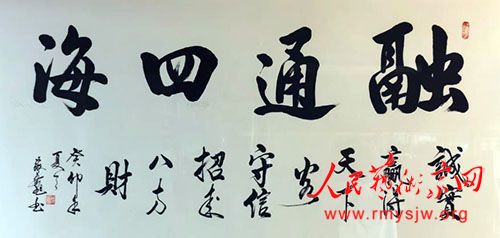 融通四海
誠實
贏得
天下
客
守信
招来
八方
財
癸卯年
夏
人民藝术家网
www.rmysjw.org